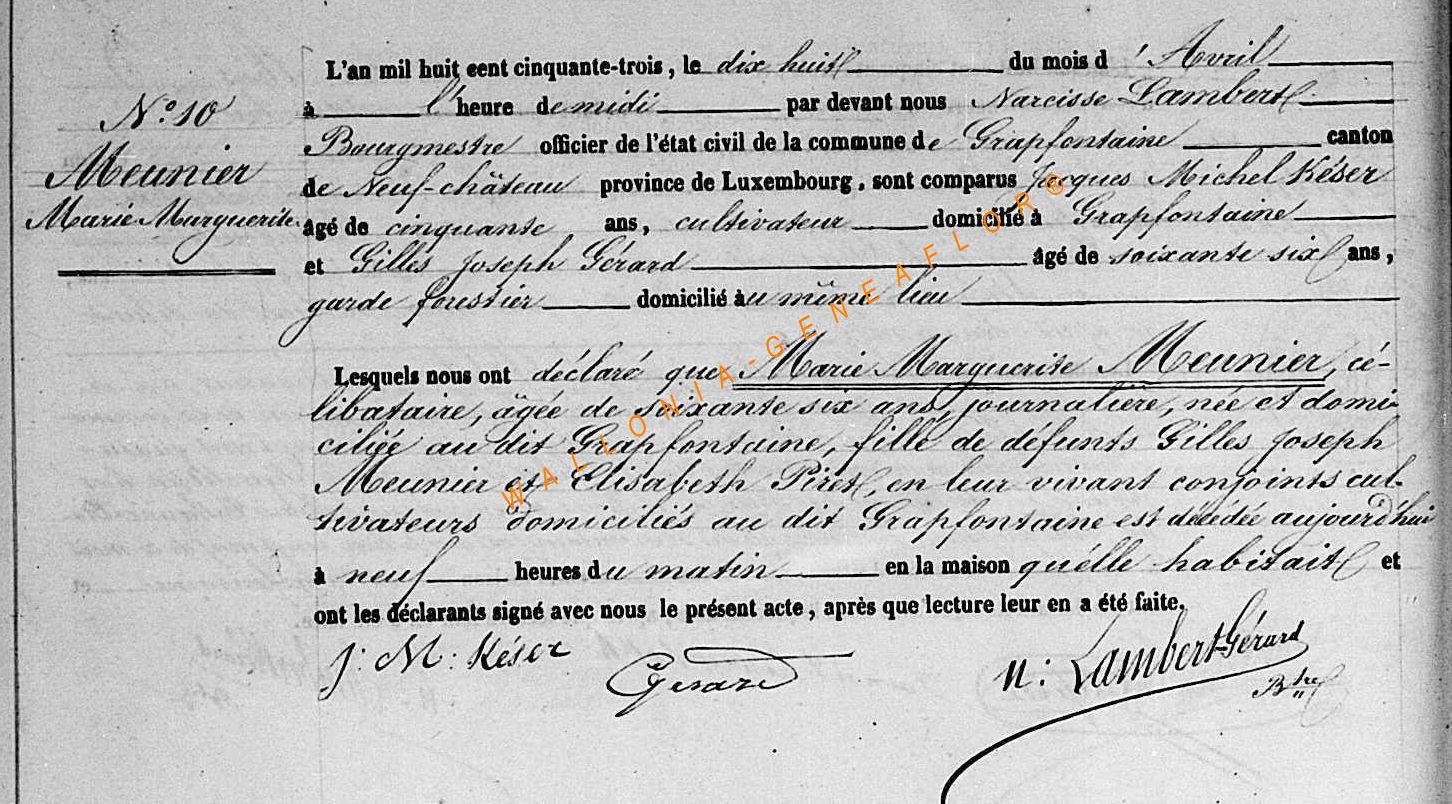 N.º 10
Meunier
Marie Marguerite
L'an mil huit cent cinquante-trois, le dix huit du mois d'Avril
à l'heure de midi par devant nous Narcisse Lambert
Bourgmestre officier de l'état civil de la commune de Grapfontaine canton
de Neuf-château province de Luxembourg, sont comparus Jacques Michel Késer
âgé de cinquante ans, cultivateur domicilié à Grapfontaine
et Gilles Joseph Gérard âgé de soixante six ans,
garde forestier domicilié au même lieu
Lesquels nous ont déclaré que Marie Marguerite Meunier, cé-
libataire, âgée de soixante six ans, journalière, née et domi-
ciliée au dit Grapfontaine, fille de défunts Gilles Joseph
Meunier et Elisabeth Piret, en leur vivant conjoints cul-
tivateurs domiciliés au dit Grapfontaine est décédée aujourd'hui
à neuf heures du matin en la maison qu'elle habitait et
ont les déclarants signé avec nous le présent acte, après que lecture leur en a été faite.
J: M: Késer
Gerard
N: Lambert-Gérard
Btre
WALLONIA-GENEAFLORE